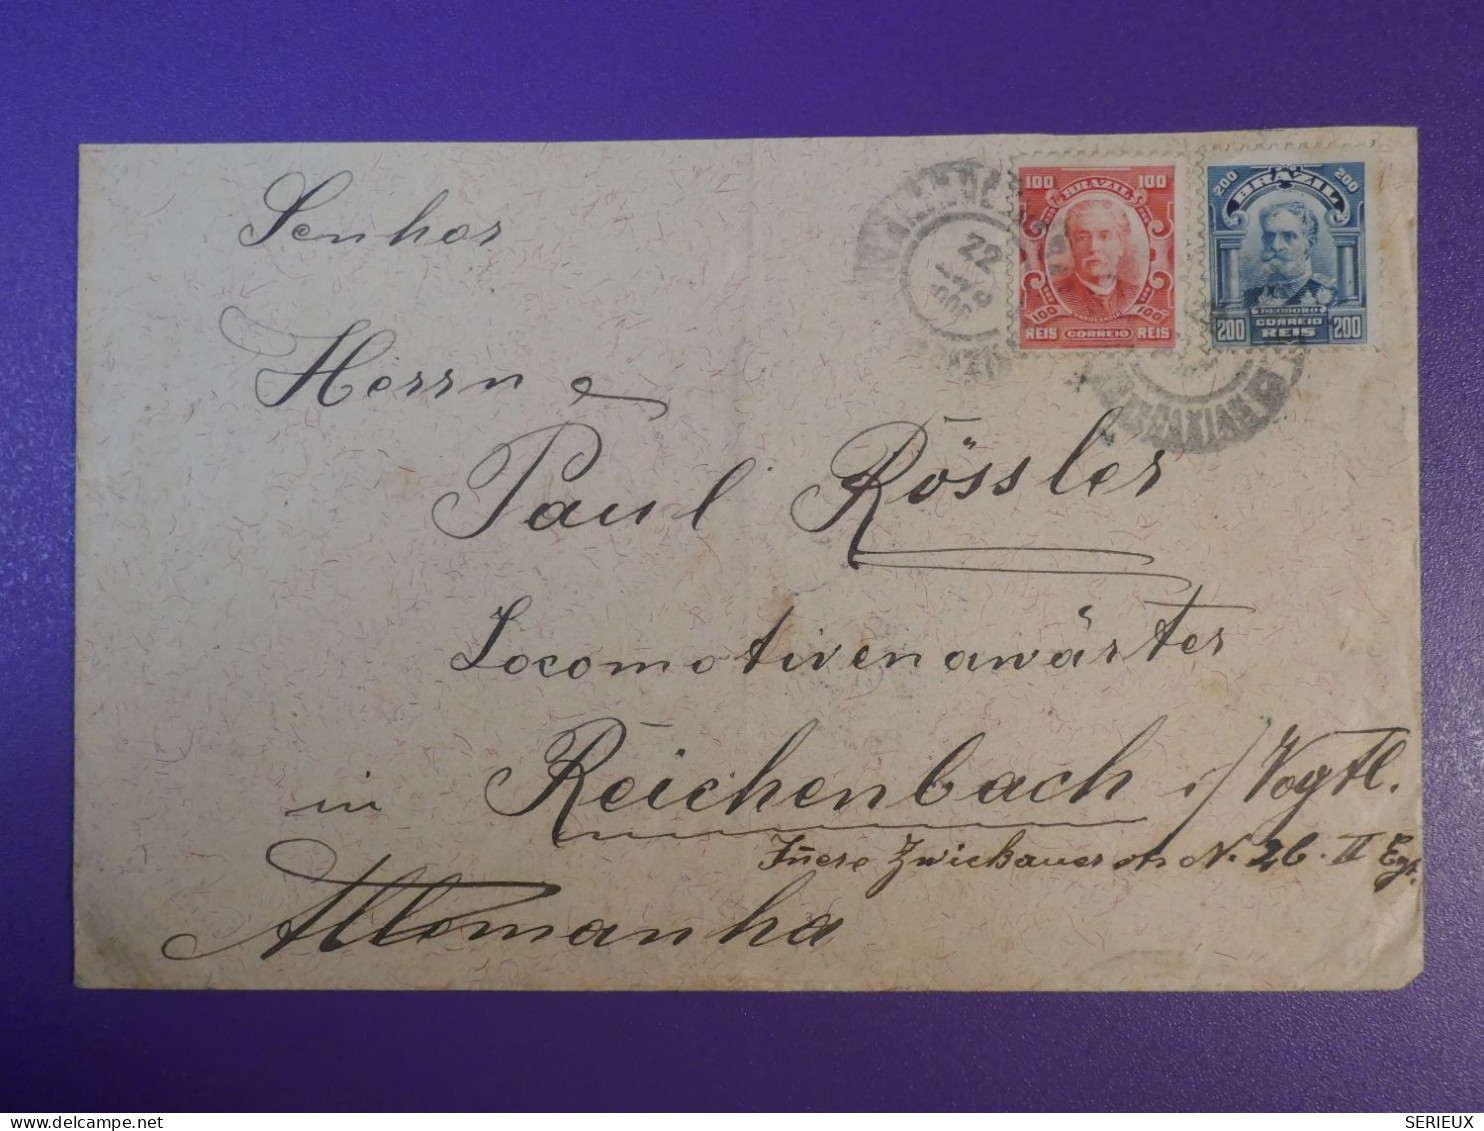 100 BRAZIL 100
100 100
REIS CORREIO REIS
200 BRAZIL 200
DEODORO
200 CORREIO 200
REIS
22
Senhor
Herrn
Paul Rössler
Locomotivenawärter
in Reichenbach i/Vogtl.
Zwickauer N. 26. II
Allemanha
SERIEUX